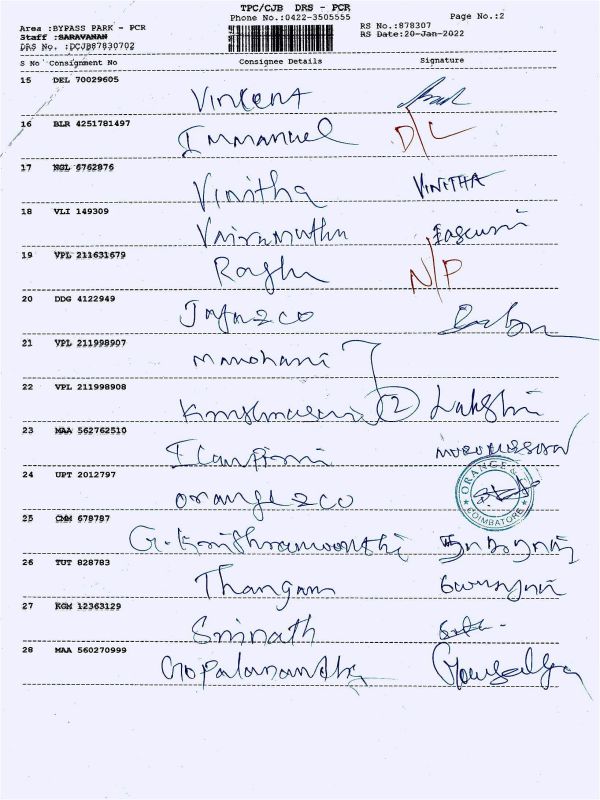 TPC/CJB DRS - PCR
Phone No.:0422-3505555 Page No.:2
Area :BYPASS PARK - PCR RS No.:878307
Staff :SARAVANAN RS Date:20-Jan-2022
DRS No. :DCJB87830702
S No Consignment No Consignee Details Signature
15 DEL 70029605 Vincent
16 BLR 4251781497 Immanuel D/L
17 NGL 6762876 Vinitha VINITHA
18 VLI 149309 Vairamuthu
19 VPL 211631679 Raghu N/P
20 DDG 4122949
21 VPL 211998907 Manohari
22 VPL 211998908 2 Lakshmi
23 MAA 562762510
24 UPT 2012797 Orange & co ORANGE & COIMBATORE
25 CMM 678787 G. Krishnamoorthi
26 TUT 828783 Thangam
27 KGM 12363129 Srinath
28 MAA 560270999